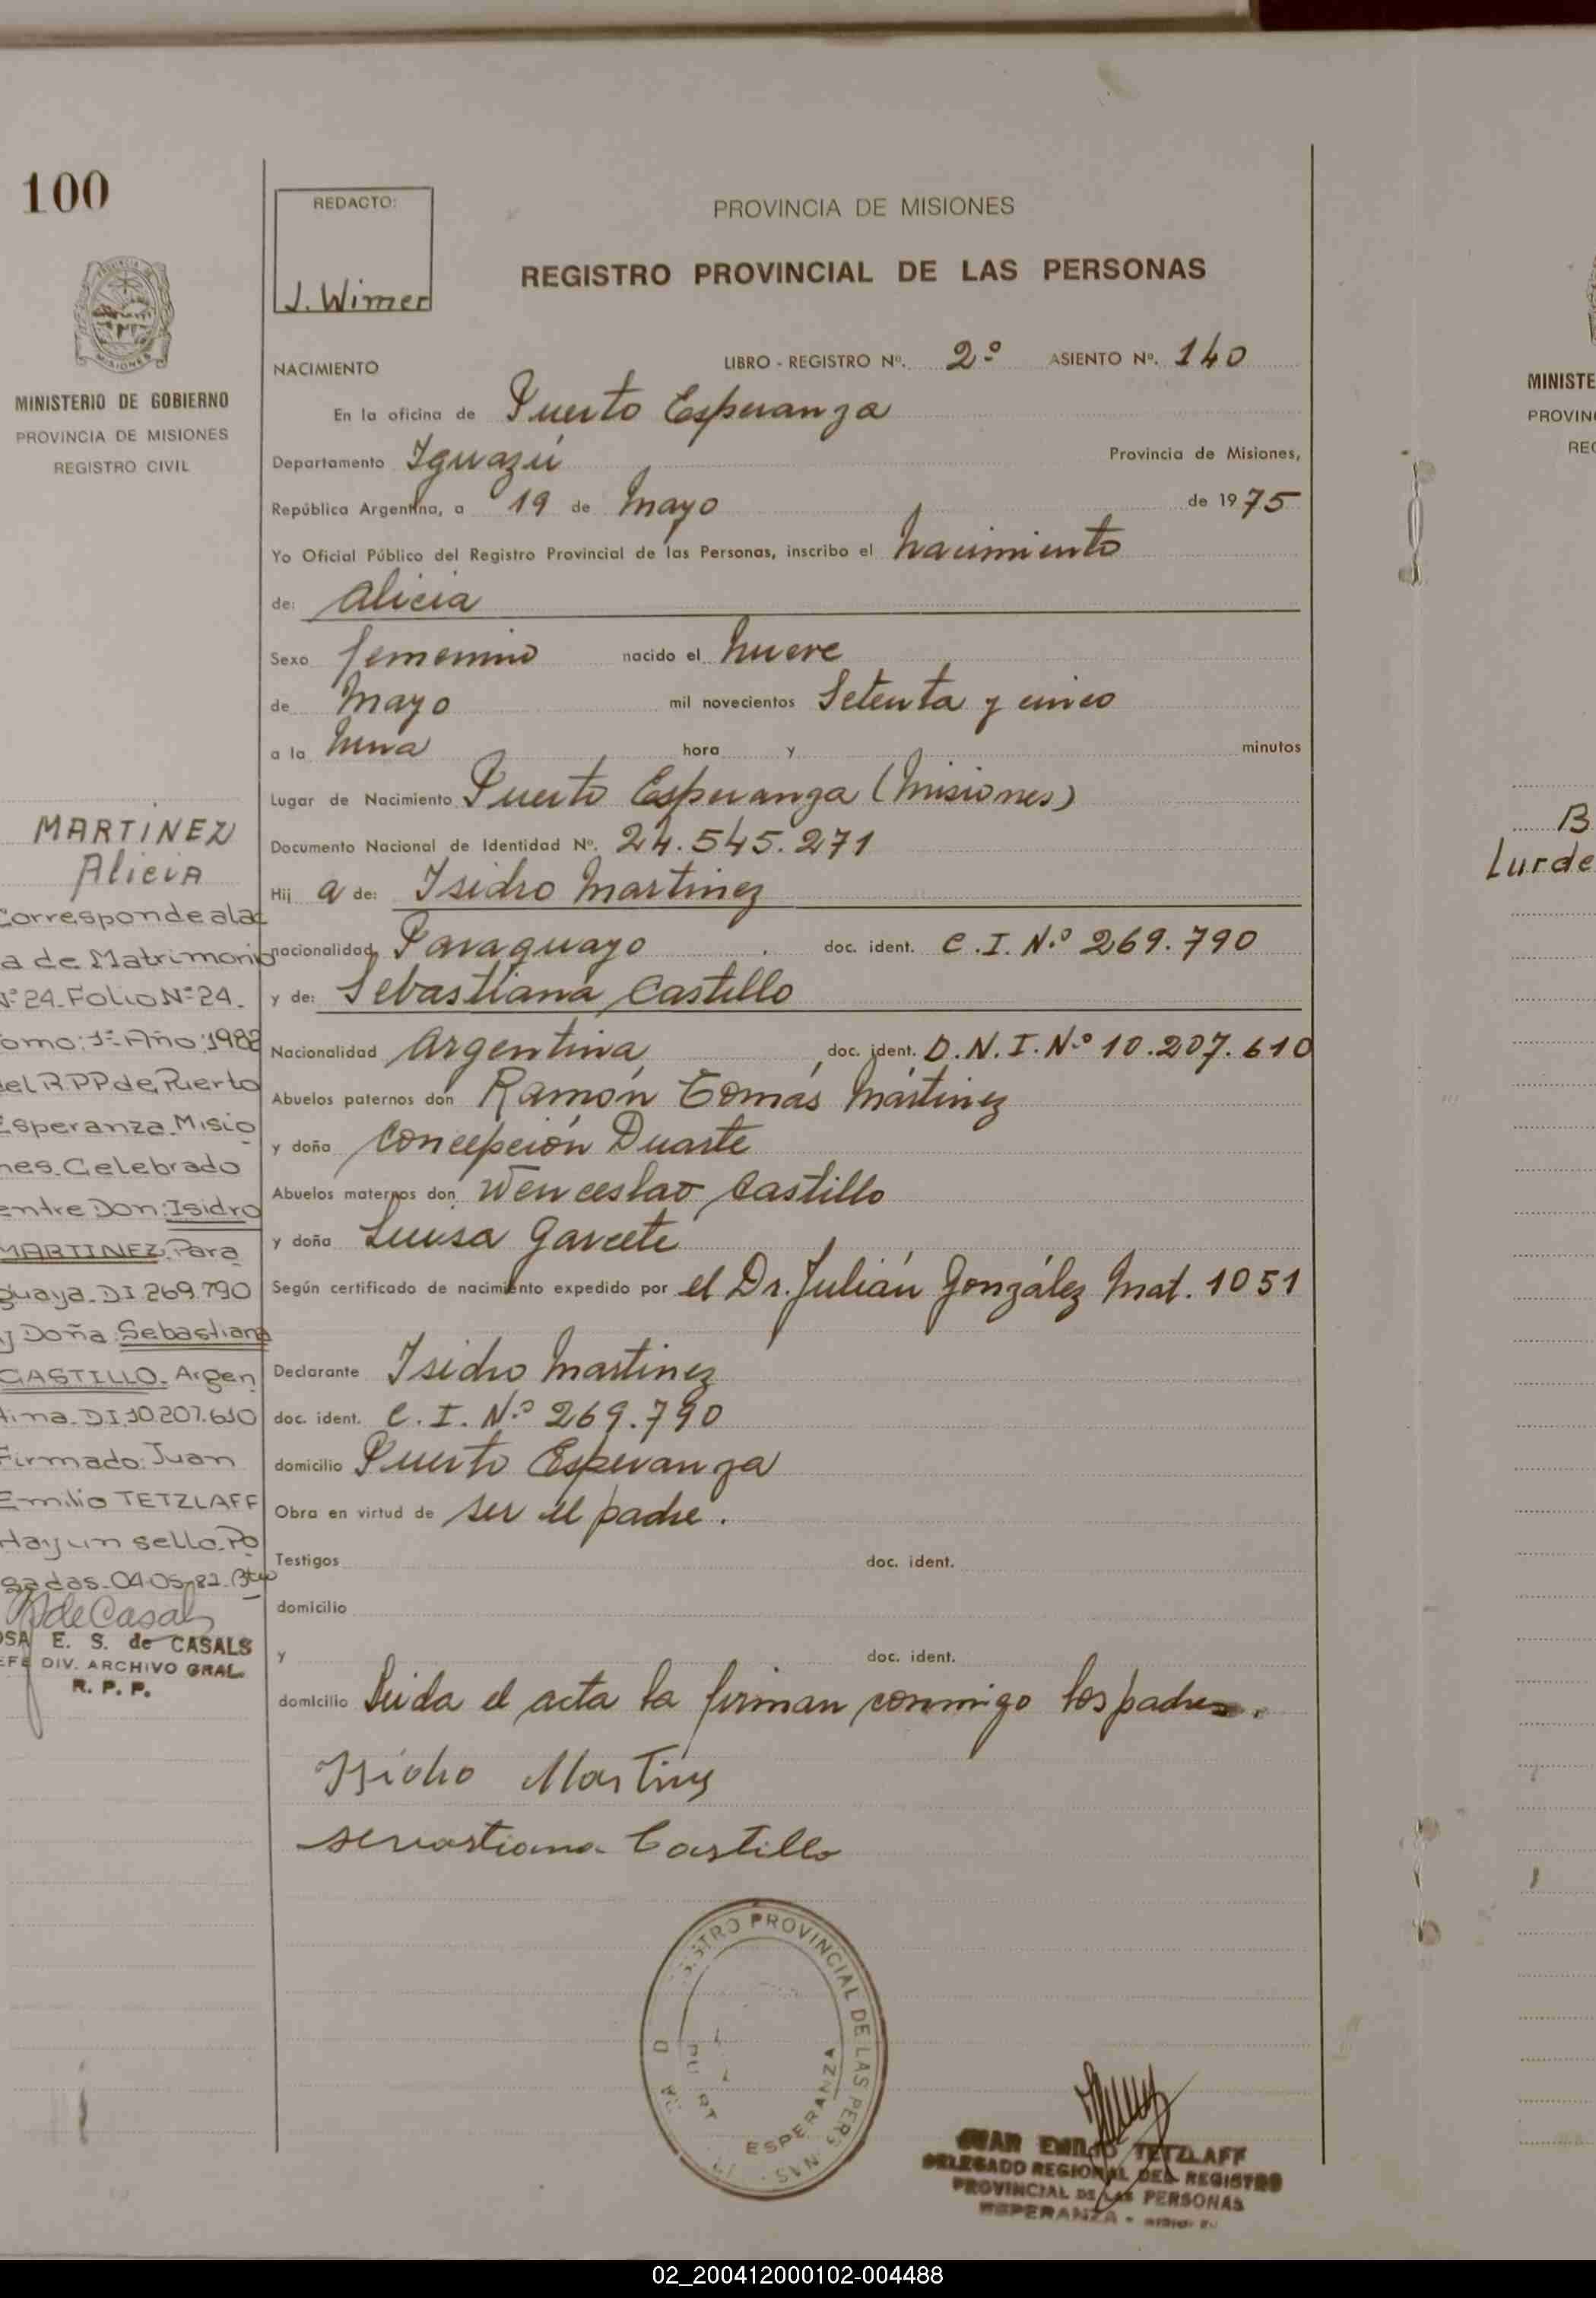 100
MINISTERIO DE GOBIERNO
PROVINCIA DE MISIONES
REGISTRO CIVIL
REDACTO:
J. Wimer
PROVINCIA DE MISIONES
REGISTRO PROVINCIAL DE LAS PERSONAS
NACIMIENTO LIBRO - REGISTRO Nº. 2º ASIENTO Nº. 140
En la oficina de Puerto Esperanza
Departamento Iguazú Provincia de Misiones,
República Argentina, a 19 de Mayo de 1975
Yo Oficial Público del Registro Provincial de las Personas, inscribo el nacimiento
de: Alicia
Sexo femenino nacido el nueve
de Mayo mil novecientos Setenta y cinco
a la huna hora y minutos
Lugar de Nacimiento Puerto Esperanza (Misiones)
Documento Nacional de Identidad Nº. 24.545.271
Hij a de: Isidro Martinez
nacionalidad Paraguayo doc. ident. C.I.N.º 269.790
y de: Sebastiana Castillo
Nacionalidad Argentina doc. ident. D.N.I.N.º 10.207.610
Abuelos paternos don Ramón Tomás Martinez
y doña Concepción Duarte
Abuelos maternos don Wenceslao Castillo
y doña Luisa Garcete
Según certificado de nacimiento expedido por el Dr. Julián González Mat. 1051
Declarante Isidro Martinez
doc. ident. C.I.N.º 269.790
domicilio Puerto Esperanza
Obra en virtud de ser el padre.
Testigos doc. ident.
domicilio
y doc. ident.
domicilio Leida el acta la firman conmigo los padres.
Isidro Martines
sevastiana Castillo
MARTINEZ
Alicia
Corresponde al ac
a de Matrimonio
Nº 24. Folio Nº 24.
omo: 1º Año: 1982
del R.P.P de Puerto
Esperanza. Misio
nes. Celebrado
entre Don: Isidro
MARTINEZ. Para
guaya. DI 269.790
y Doña: Sebastiana
CASTILLO. Argen
tina. DI. 10.207.610
Firmado: Juan
Emilio TETZLAFF
Hay un sello. Po
sadas. 04-05-82.
de Casals
OSA E. S. de CASALS
EFE DIV. ARCHIVO GRAL.
R. P. P.
ISTRO PROVINCIAL DE LAS PERS NAS
ESPERANZA
JUAN EMILIO TETZLAFF
DELEGADO REGIONAL DEL REGISTRO
PROVINCIAL DE LAS PERSONAS
ESPERANZA -
MINISTE
PROVIN
REG
B
Lurde
02_200412000102-004488